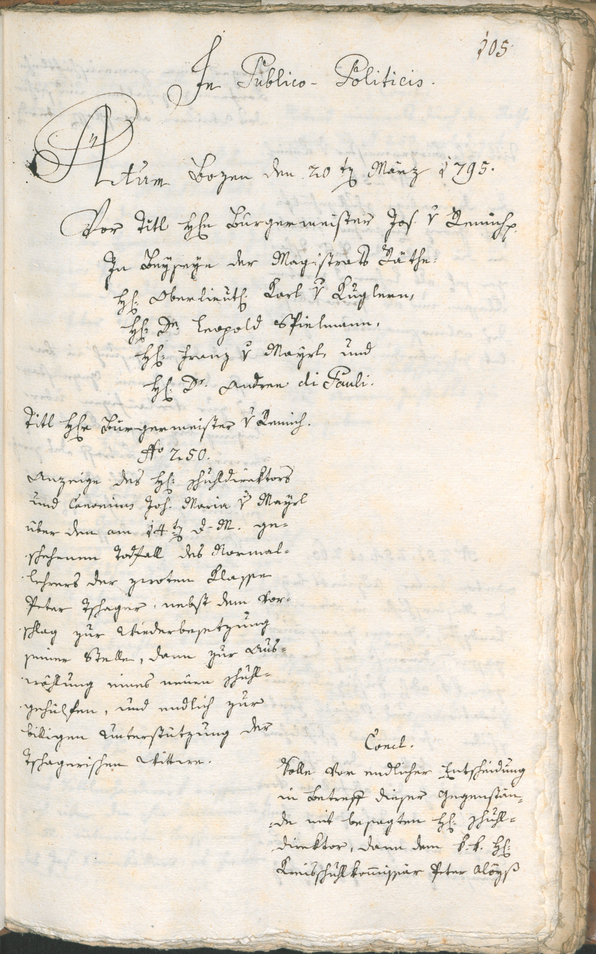 105
In Publico-Politicis.
Actum Bozen den 20ten März 1795.
Vor Titl Hhn Burgermeister Jos. v Remich.
In Beyseyn der Magistrats Räthe:
Hh: Oberlieut: Karl v Kuglern,
Hh: Dr. Leopold Spielmann,
Hh: Franz v Mayrl, und
Hh: Dr. Andreæ di Pauli.
Titl Hhn Burgermeister v Remich.
No 250.
Anzeige des Hh: Schuldirektors
und Canonicus Joh. Maria v Mayrl
über den am 14ten d. M. ge-
schehenen Todfall des Normal-
lehrers der zwoten Klasse
Peter Tschager, nebst dem Vor-
schlag zur Wiederbesetzung
seiner Stelle, dann zur Aus-
wählung eines neuen Schul-
gehülfen, und endlich zur
billigen Unterstützung der
Tschagerischen Wittwe.
Concl.
Solle vor endlicher Entscheidung
in Betreff dieser Gegenstän-
de mit besagten Hh: Schul-
direktor, dann dem k. k. Hh:
Kreisschulkommissär Peter Aloys